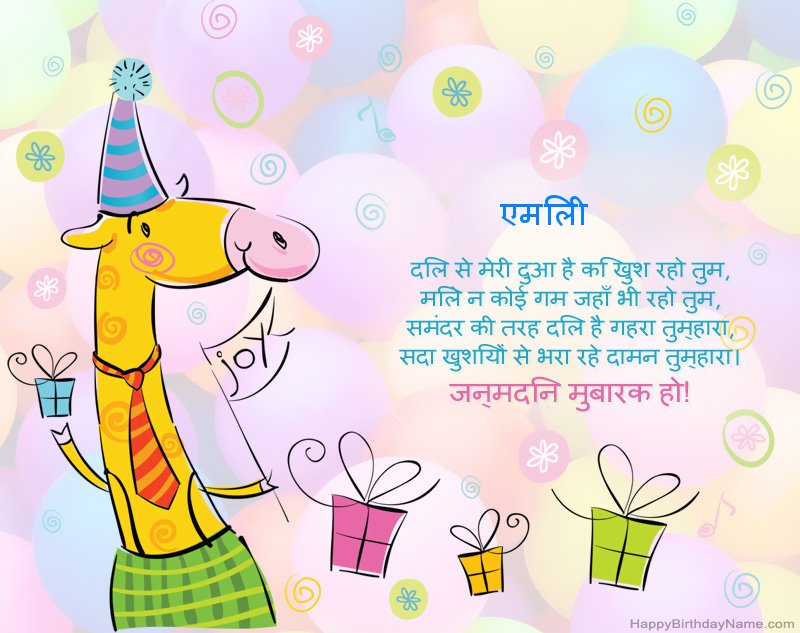 एमिली
दिल से मेरी दुआ है कि खुश रहो तुम,
मिले न कोई गम जहाँ भी रहो तुम,
समंदर की तरह दिल है गहरा तुम्हारा,
सदा खुशियों से भरा रहे दामन तुम्हारा।
जन्मदिन मुबारक हो!
joy
HappyBirthdayName.com